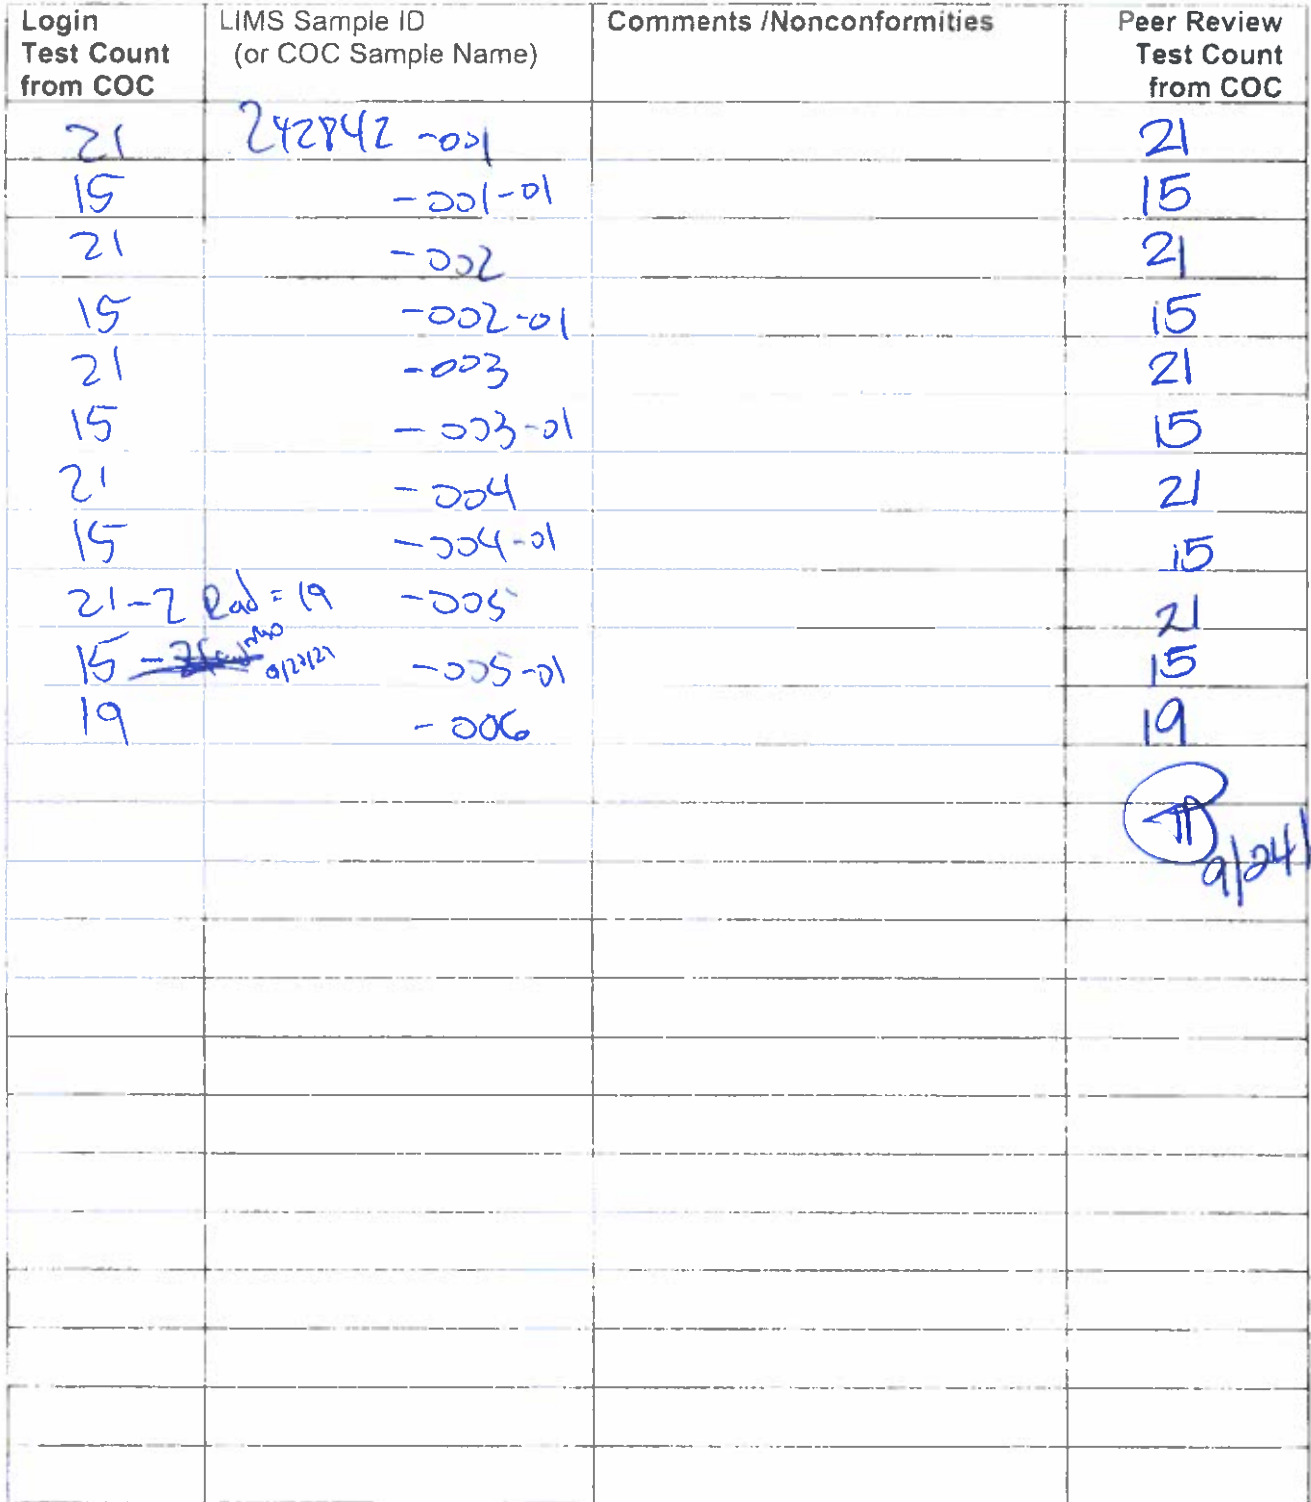 Login Test Count from COC
LIMS Sample ID (or COC Sample Name)
Comments /Nonconformities
Peer Review Test Count from COC
21 242842 -001 21
15 -001-01 15
21 -002 21
15 -002-01 15
21 -003 21
15 -003-01 15
21 -004 21
15 -004-01 15
21-2 Rad = 19 -005 21
15 -005-01 15
19 -006 19
9/24/